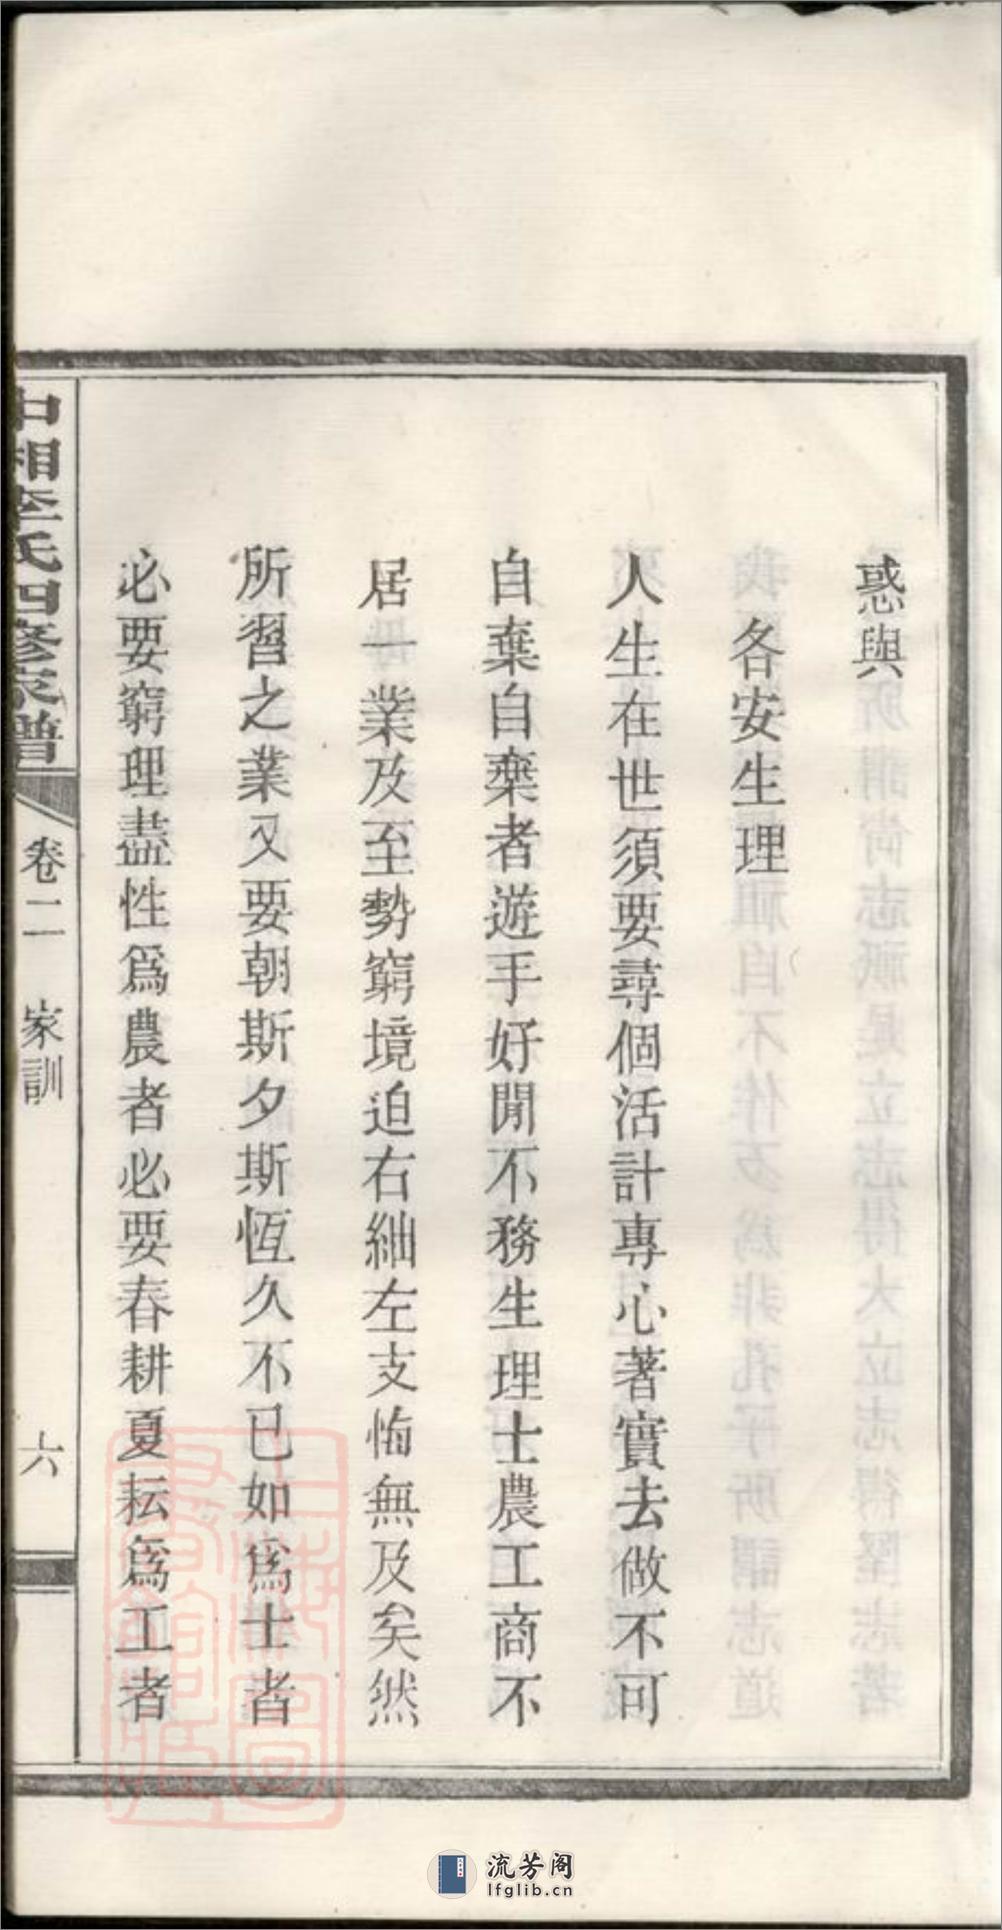 惑與
各安生理
人生在世須要尋個活計專心著實去做不可
自棄自棄者遊手好閒不務生理士農工商不
居一業及至勢窮境迫右紬左支悔無及矣然
所習之業又要朝斯夕斯恆久不已如爲士者
必要窮理盡性爲農者必要春耕夏耘爲工者
中湘李氏四修家譜
卷二 家訓
六
上海圖書館藏
流芳阁
lfglib.cn